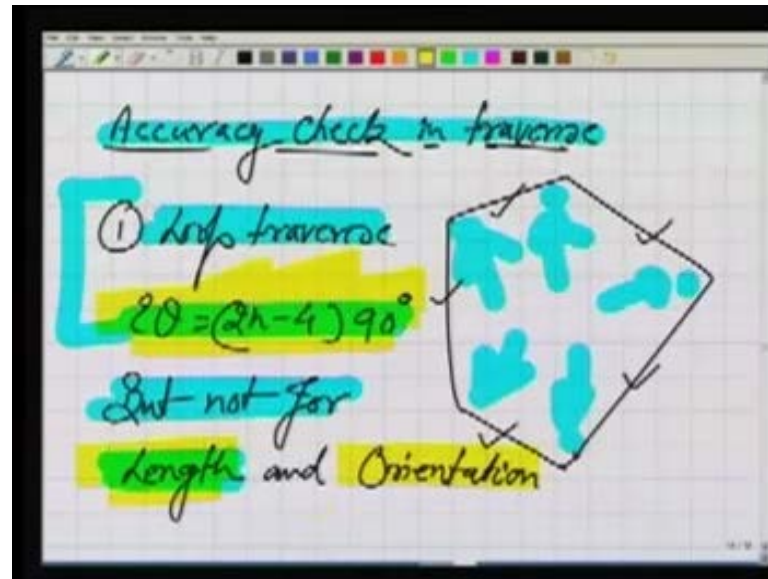 Accuracy check in traverse
① Loop traverse
Σθ = (2n-4) 90°
But not for
Length and Orientation